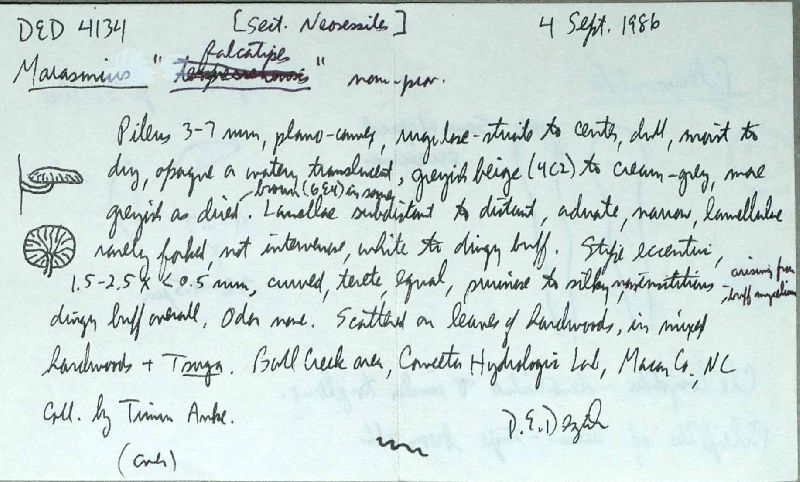 DED 4134 [Sect. Neosessiles] 4 Sept. 1986
falcatipes
Marasmius " " nom. prov.
Pileus 3-7 mm, plano-convex, rugulose-striate to center, dull, moist to
dry, opaque or watery translucent, greyish beige (4C2) to cream-grey, more
brown (6E4) in some
greyish as dried. Lamellae subdistant to distant, adnate, narrow, lamellulae
rarely forked, not intervenose, white to dingy buff. Stipe eccentric,
1.5-2.5 x <0.5 mm, curved, terete, equal, pruinose to silky, noninstititious, arising from
buff mycelium
dingy buff overall. Odor none. Scattered on leaves of hardwoods, in mixed
hardwoods + Tsuga. Ball Creek area, Coweeta Hydrologic Lab, Macon Co., NC
Coll. by Timm Anke.
D.E. Desjardin